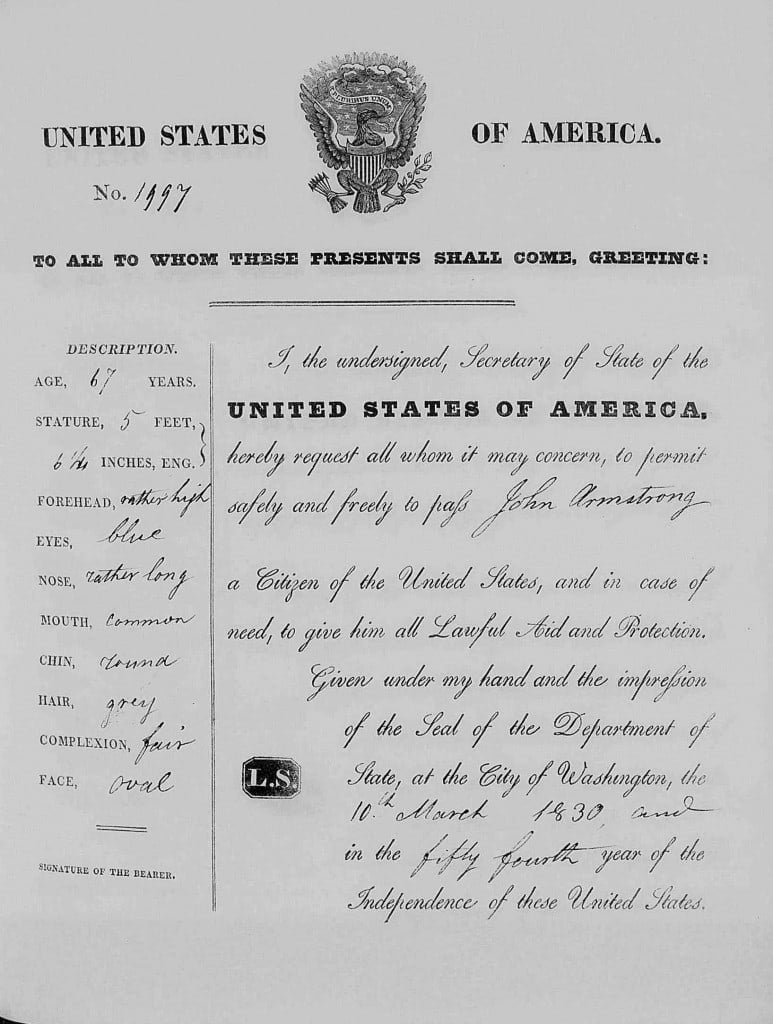 E PLURIBUS UNUM
UNITED STATES OF AMERICA.
No. 1997
TO ALL TO WHOM THESE PRESENTS SHALL COME, GREETING:
DESCRIPTION.
AGE, 67 YEARS.
STATURE, 5 FEET,
6 1/4 INCHES, ENG.
FOREHEAD, rather high
EYES, blue
NOSE, rather long
MOUTH, common
CHIN, round
HAIR, grey
COMPLEXION, fair
FACE, oval
SIGNATURE OF THE BEARER.
I, the undersigned, Secretary of State of the
UNITED STATES OF AMERICA,
hereby request all whom it may concern, to permit
safely and freely to paſs John Armstrong
a Citizen of the United States, and in case of
need, to give him all Lawful Aid and Protection.
Given under my hand and the impreſsion
of the Seal of the Department of
L.S. State, at the City of Washington, the
10th March 1830, and
in the fifty fourth year of the
Independence of these United States.